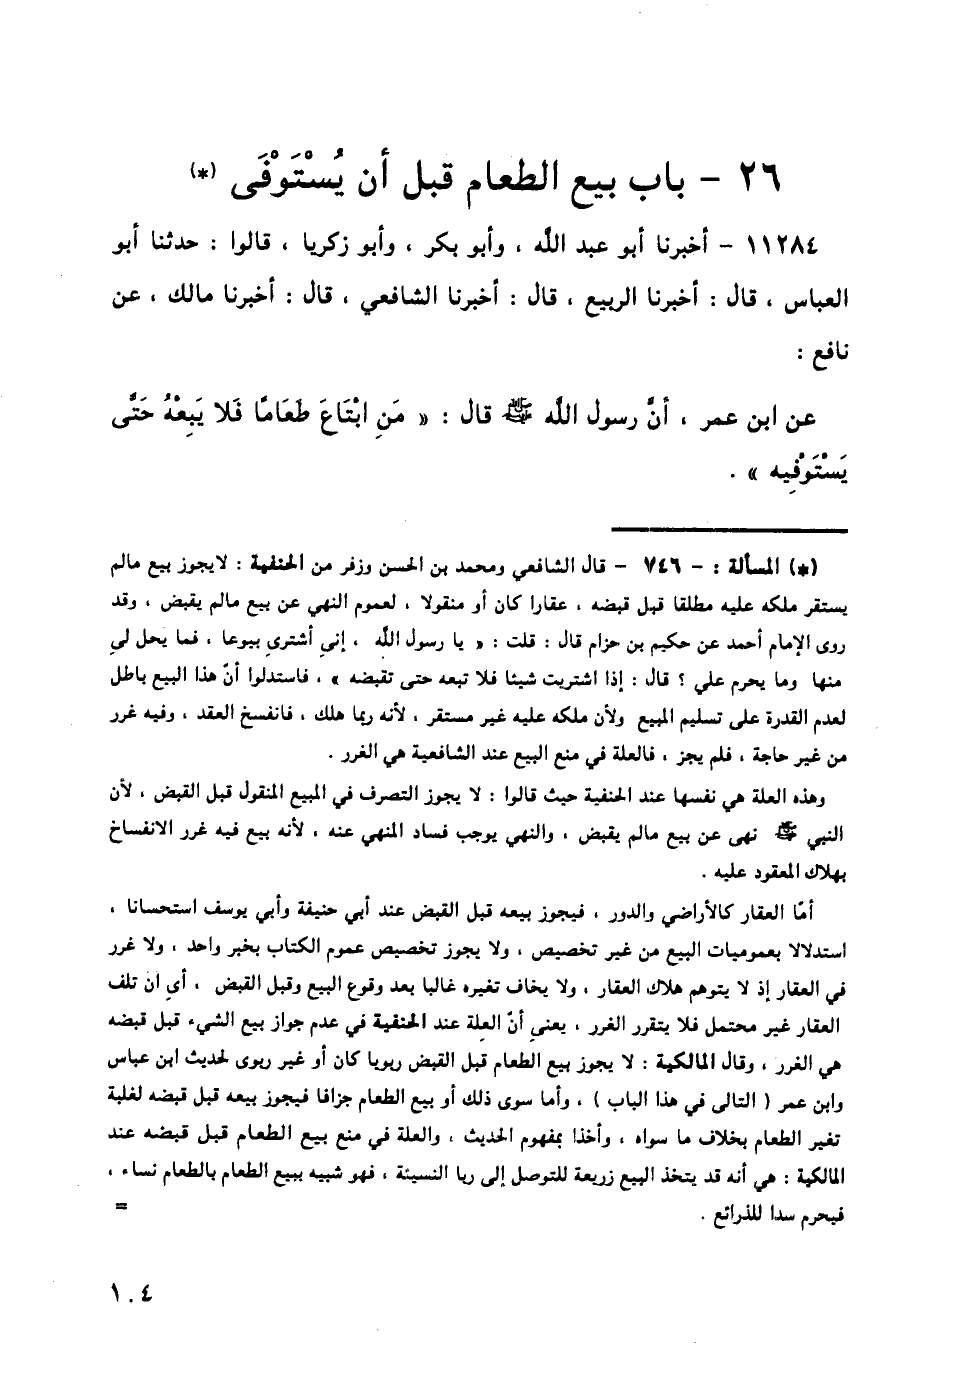 ٢٦ - باب بيع الطعام قبل أن يُسْتَوْفَى (*)
١١٢٨٤ - أخبرنا أبو عبد الله ، وأبو بكر ، وأبو زكريا ، قالوا : حدثنا أبو
العباس ، قال : أخبرنا الربيع ، قال : أخبرنا الشافعي ، قال : أخبرنا مالك ، عن
نافع :
عن ابن عمر ، أنَّ رسول الله ﷺ قال : « مَنِ ابْتَاعَ طَعَامًا فَلا يَبِعْهُ حَتَّى
يَسْتَوْفِيه » .
(*) المسألة : - ٧٤٦ - قال الشافعي ومحمد بن الحسن وزفر من الحنفية : لايجوز بيع مالم
يستقر ملكه عليه مطلقا قبل قبضه ، عقارا كان أو منقولا ، لعموم النهي عن بيع مالم يقبض ، وقد
روى الإمام أحمد عن حكيم بن حزام قال : قلت : « يا رسول الله ، إني أشتري بيوعا ، فما يحل لي
منها وما يحرم علي ؟ قال : إذا اشتريت شيئا فلا تبعه حتى تقبضه » ، فاستدلوا أنّ هذا البيع باطل
لعدم القدرة على تسليم المبيع ولأن ملكه عليه غير مستقر ، لأنه ربما هلك ، فانفسخ العقد ، وفيه غرر
من غير حاجة ، فلم يجز ، فالعلة في منع البيع عند الشافعية هي الغرر .
وهذه العلة هي نفسها عند الحنفية حيث قالوا : لا يجوز التصرف في المبيع المنقول قبل القبض ، لأن
النبي ﷺ نهى عن بيع مالم يقبض ، والنهي يوجب فساد المنهي عنه ، لأنه بيع فيه غرر الانفساخ
بهلاك المعقود عليه .
أمّا العقار كالأراضي والدور ، فيجوز بيعه قبل القبض عند أبي حنيفة وأبي يوسف استحسانا ،
استدلالا بعموميات البيع من غير تخصيص ، ولا يجوز تخصيص عموم الكتاب بخبر واحد ، ولا غرر
في العقار إذ لا يتوهم هلاك العقار ، ولا يخاف تغيره غالبا بعد وقوع البيع وقبل القبض ، أي ان تلف
العقار غير محتمل فلا يتقرر الغرر ، يعني أنّ العلة عند الحنفية في عدم جواز بيع الشيء قبل قبضه
هي الغرر ، وقال المالكية : لا يجوز بيع الطعام قبل القبض ربويا كان أو غير ربوى لحديث ابن عباس
وابن عمر ( التالى في هذا الباب ) ، وأما سوى ذلك أو بيع الطعام جزافا فيجوز بيعه قبل قبضه لغلبة
تغير الطعام بخلاف ما سواه ، وأخذا بمفهوم الحديث ، والعلة في منع بيع الطعام قبل قبضه عند
المالكية : هي أنه قد يتخذ البيع زريعة للتوصل إلى ربا النسيئة ، فهو شبيه ببيع الطعام بالطعام نساء ،
فيحرم سدا للذرائع . =
١٠٤